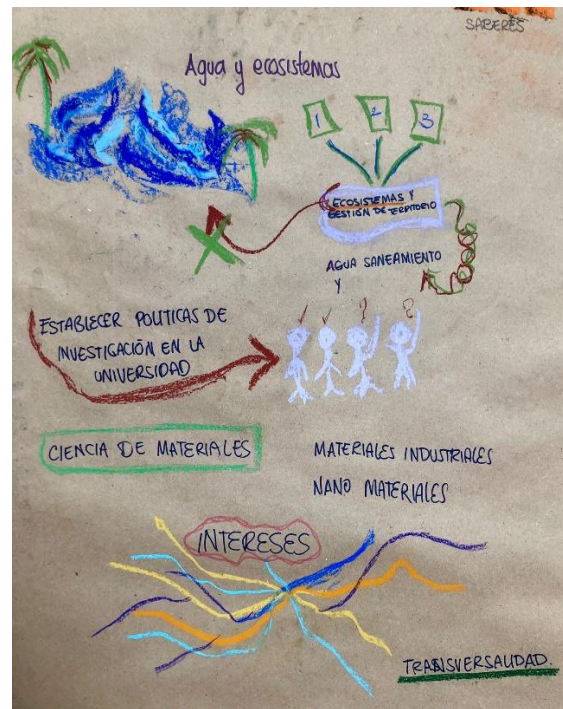 SABERES
Agua y ecosistemas
1 2 3
ECOSISTEMAS Y
GESTIÓN DE TERRITORIO
AGUA SANEAMIENTO
Y
ESTABLECER POLITICAS DE
INVESTIGACIÓN EN LA
UNIVERSIDAD
? ?
CIENCIA DE MATERIALES
MATERIALES INDUSTRIALES
NANO MATERIALES
INTERESES
TRANSVERSALIDAD.